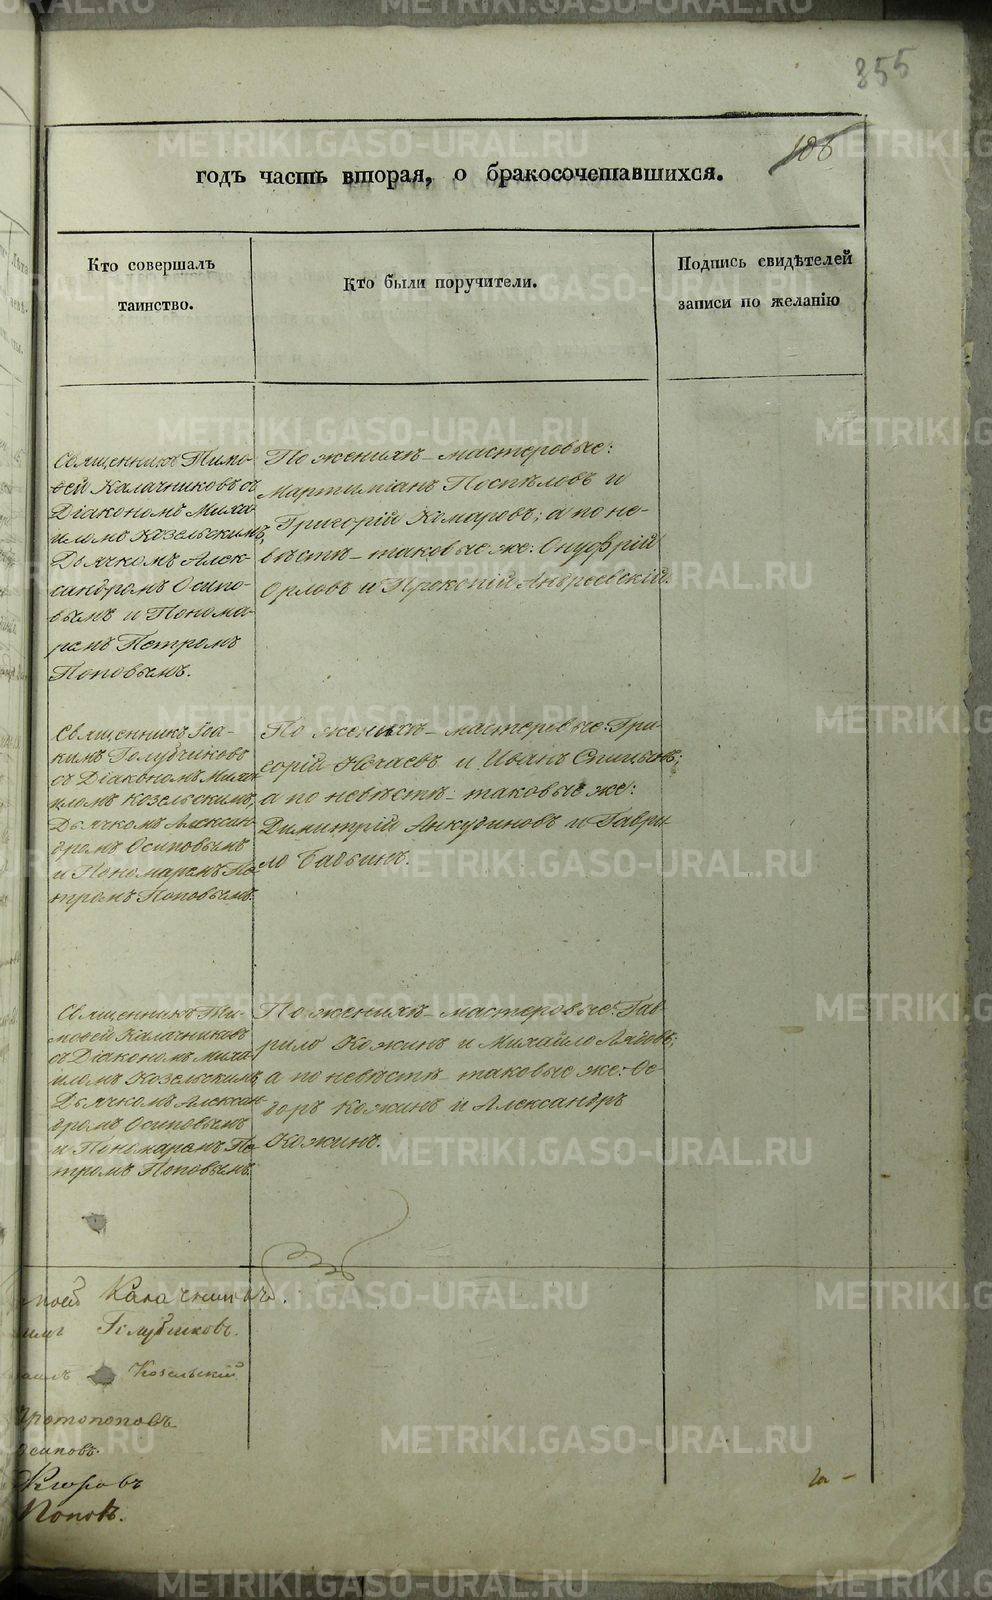 355
106
годъ часть вторая, о бракосочетавшихся.
Кто совершалъ
таинство.
Кто были поручители.
Подпись свидѣтелей
записи по желанію
Священникъ Тимо-
ѳей Калачниковъ съ
Діакономъ Миха-
иломъ Козельскимъ,
Дьячкомъ Алек-
сандромъ Осипо-
вымъ и Понома-
ремъ Петромъ
Поповымъ.
По женихѣ - мастеровые:
Мартиміанъ Поспѣловъ и
Григорій Комаровъ; а по не-
вѣстѣ - таковые же: Онуфрій
Орловъ и Прокопій Андреевскій.
Священникъ Іоа-
кимъ Голубчиковъ
съ Діакономъ Миха-
иломъ Козельскимъ,
Дьячкомъ Алексан-
дромъ Осиповымъ
и Пономаремъ Пе-
тромъ Поповымъ.
По женихѣ - мастеровые: Гри-
горій Нечаевъ и Иванъ Спицынъ;
а по невѣстѣ - таковые же:
Димитрій Анкудиновъ и Гаври-
ло Бабинъ.
Священникъ Ти-
моѳей Калачниковъ
съ Діакономъ Миха-
иломъ Козельскимъ,
Дьячкомъ Алексан-
дромъ Осиповымъ
и Пономаремъ Пе-
тромъ Поповымъ.
По женихѣ - мастеровые: Гав-
рило Кожинъ и Михайло Лядовъ;
а по невѣстѣ - таковые же: Ѳе-
доръ Кожинъ и Александръ
Кожинъ.
моѳей Калачниковъ.
имъ Голубчиковъ.
аилъ Козельскій
Протопоповъ
Осиповъ.
Поповъ.
METRIKI.GASO-URAL.RU